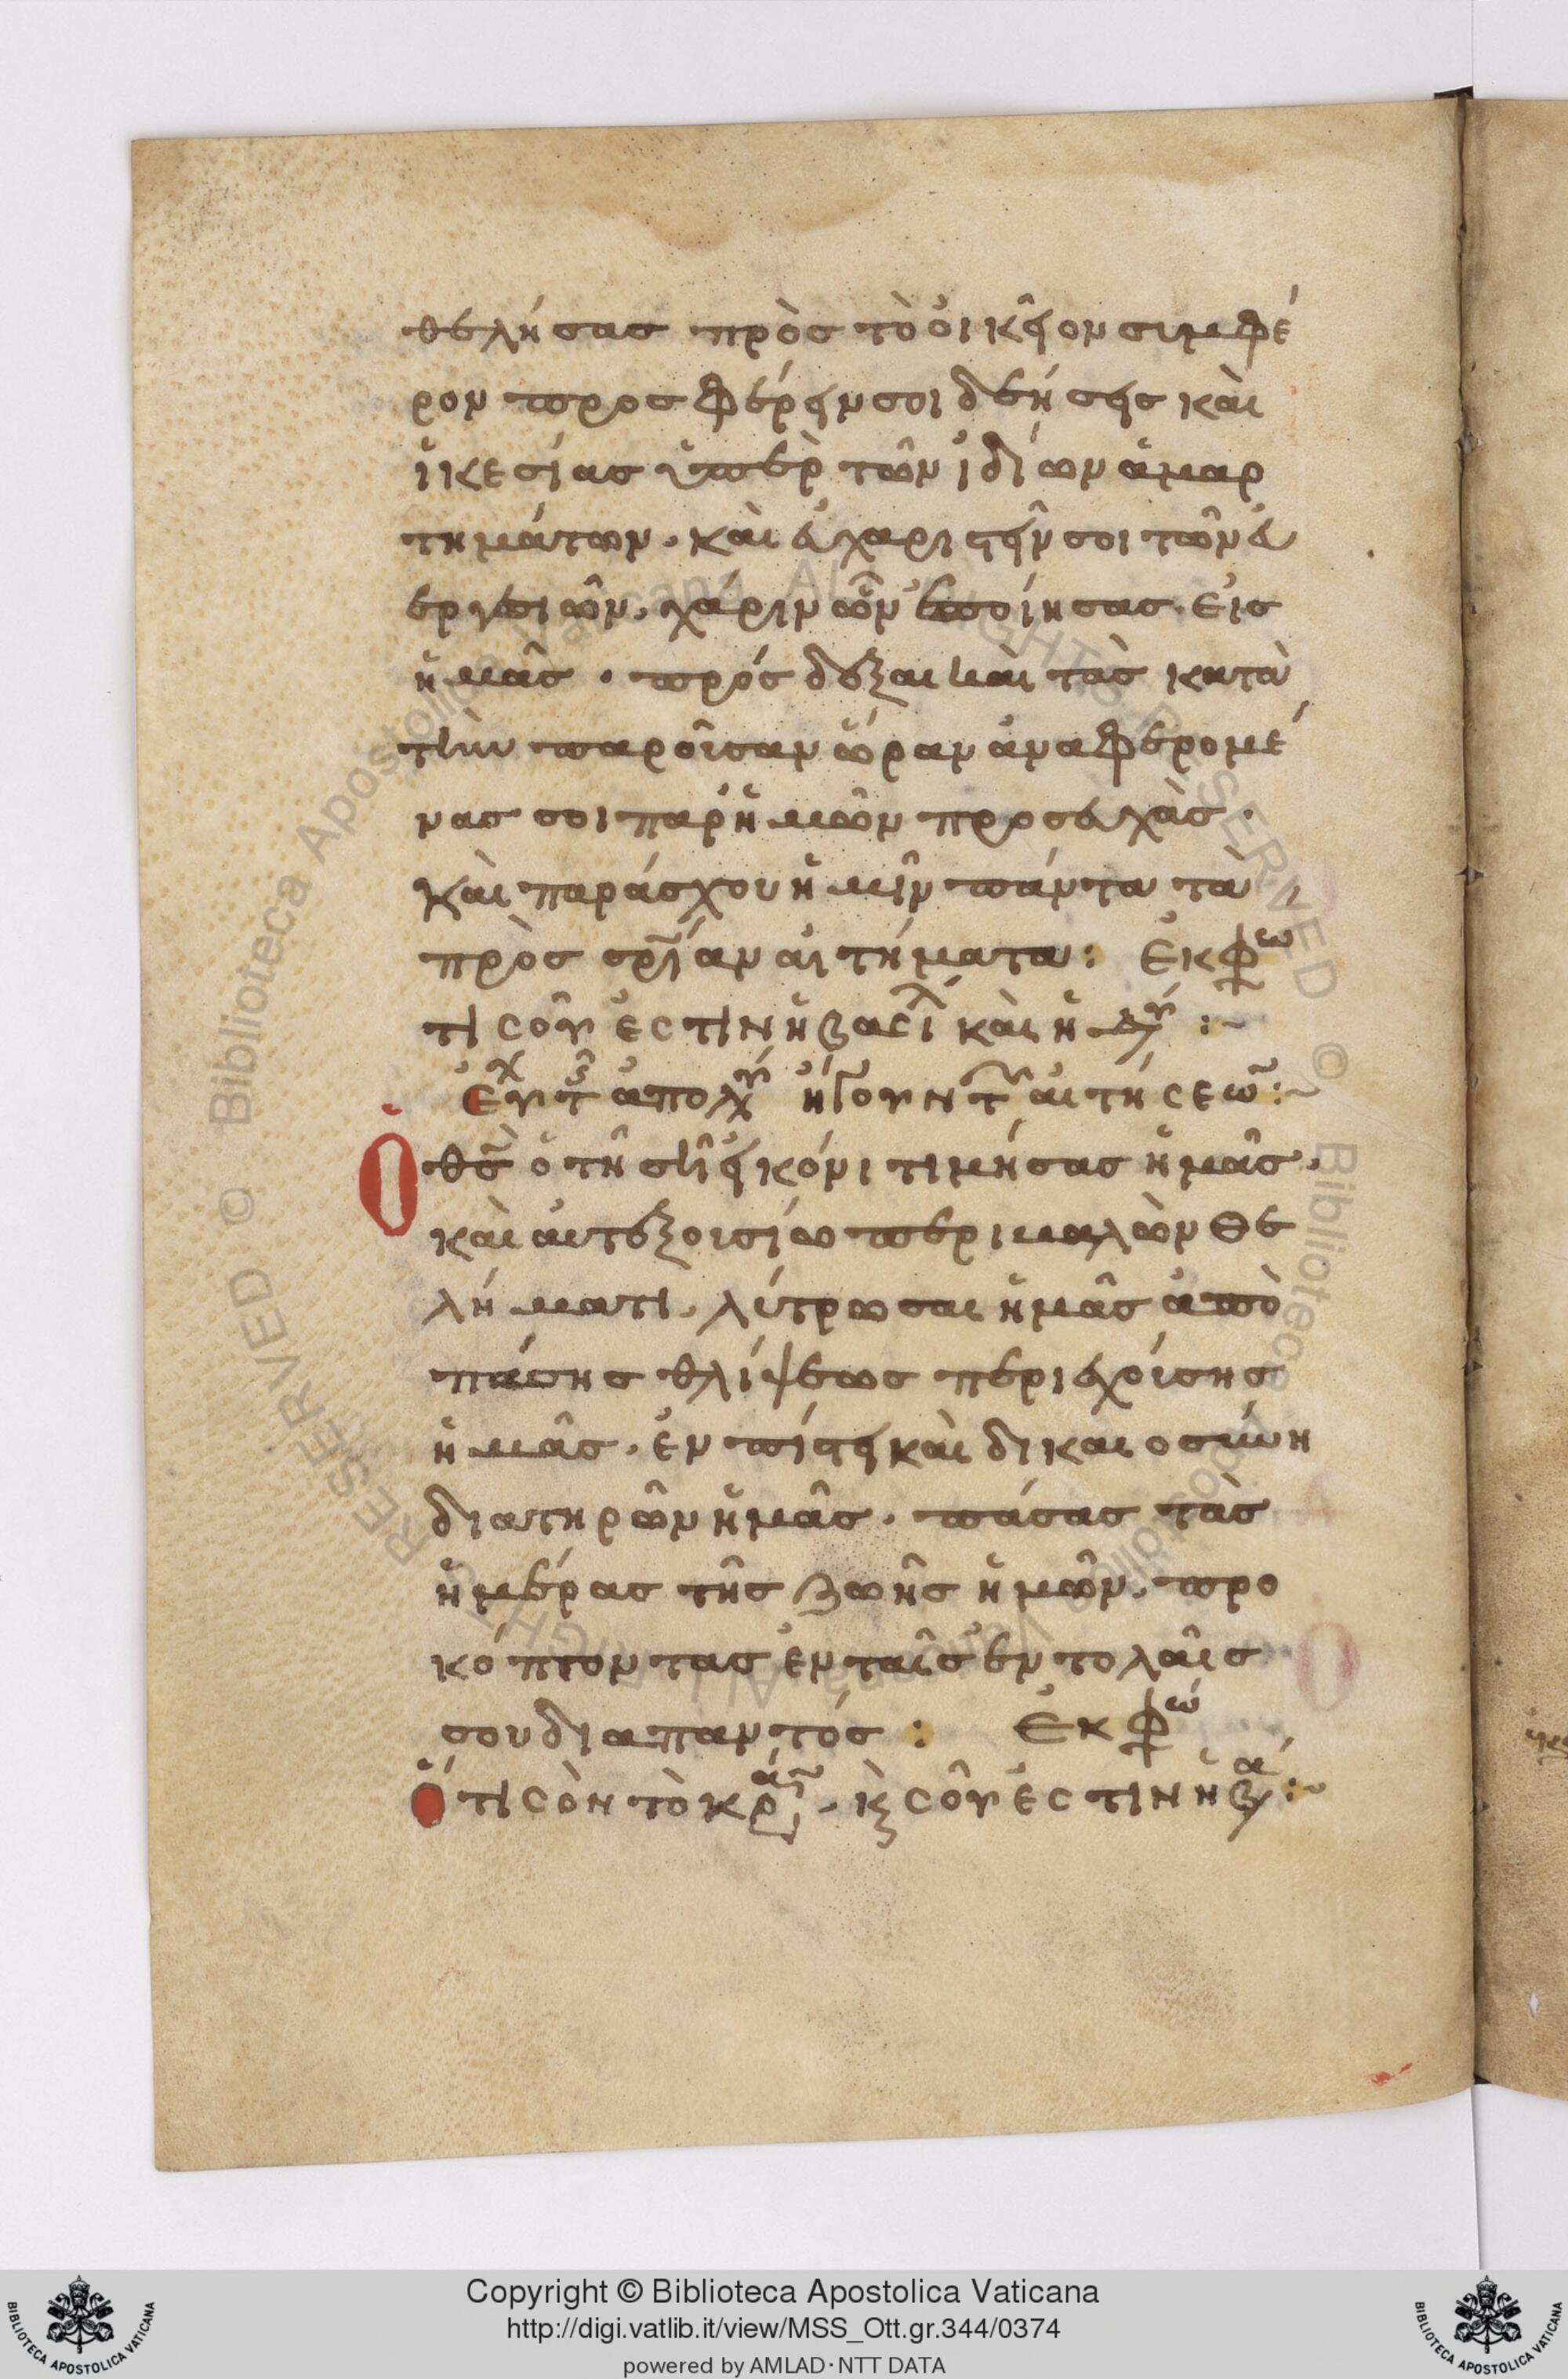 θελήσας πρὸς τὸ οἰκεῖον συμφέ
ρον προσφέρειν σοι δεήσεις καὶ
ἱκεσίας ὑπὲρ τῶν ἰδίων ἁμαρ
τημάτων. καὶ εὐχαριστεῖν σοι τῶν εὐ
εργεσιῶν. χάριν ὧν ἐποίησας εἰς
ἡμᾶς. πρόσδεξαι καὶ τὰς κατὰ
τὴν παροῦσαν ὥραν ἀναφερομέ
νας σοι παρ ἡμῶν προσευχάς.
καὶ παράσχου ἡμῖν πάντα τὰ
πρὸς σρίαν αἰτήματα: Ἐκφω
τι σοῦ ἐστιν ἡ βασιλ καὶ ἡ δυ :~
Εὐχ ἀπολυ ἤγουν τ αἰτήσεω :~
Ὁ θς ὁ τῆ σῆ εἰκόνι τιμήσας ἡμᾶς.
καὶ αὐτεξουσίω περιβαλὼν θε
λήματι. λύτρωσαι ἡμᾶς ἀπὸ
πάσης θλίψεως περιεχούσης
ἡμᾶς. ἐν πίστει καὶ δικαιοσύνη
διατηρῶν ἡμᾶς. πάσας τὰς
ἡμέρας τῆς ζωῆς ἡμῶν. προ
κόπτοντας ἐν ταῖς ἐντολαῖς
σου διαπαντός : Ἐκφω
Ὅτι σὸν τὸ κρά. κ σοῦ ἐστιν ἡ βα :~
Copyright © Biblioteca Apostolica Vaticana
http://digi.vatlib.it/view/MSS_Ott.gr.344/0374
powered by AMLAD·NTT DATA
BIBLIOTECA APOSTOLICA VATICANA
BIBLIOTECA APOSTOLICA VATICANA